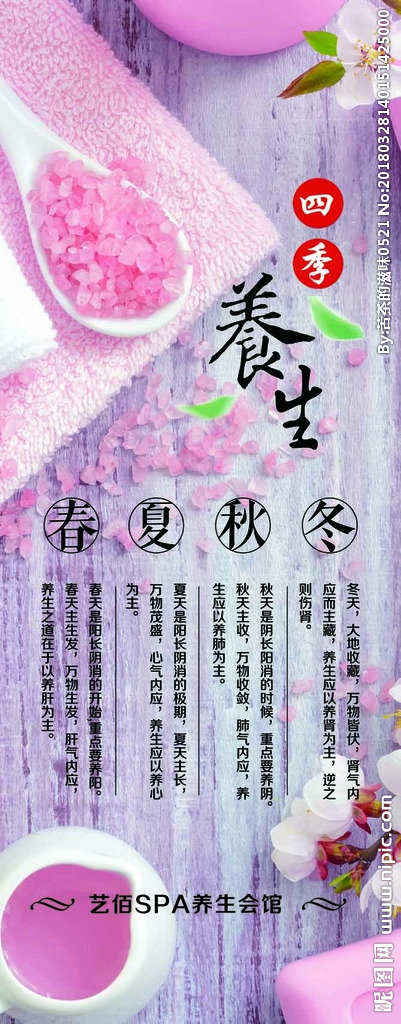 四季
養生
春
夏
秋
冬
春天是阳长阴消的开始重点要养阳。
春天主生发，万物生发，肝气内应，
养生之道在于以养肝为主。
夏天是阳长阴消的极期，夏天主长，
万物茂盛，心气内应，养生应以养心
为主。
秋天是阴长阳消的时候，重点要养阴。
秋天主收，万物收敛，肺气内应，养
生应以养肺为主。
冬天，大地收藏，万物皆伏，肾气内
应而主藏，养生应以养肾为主，逆之
则伤肾。
艺佰SPA养生会馆
By:苦茶的滋味0521 No:20180328140151425000
昵图网 www.nipic.com